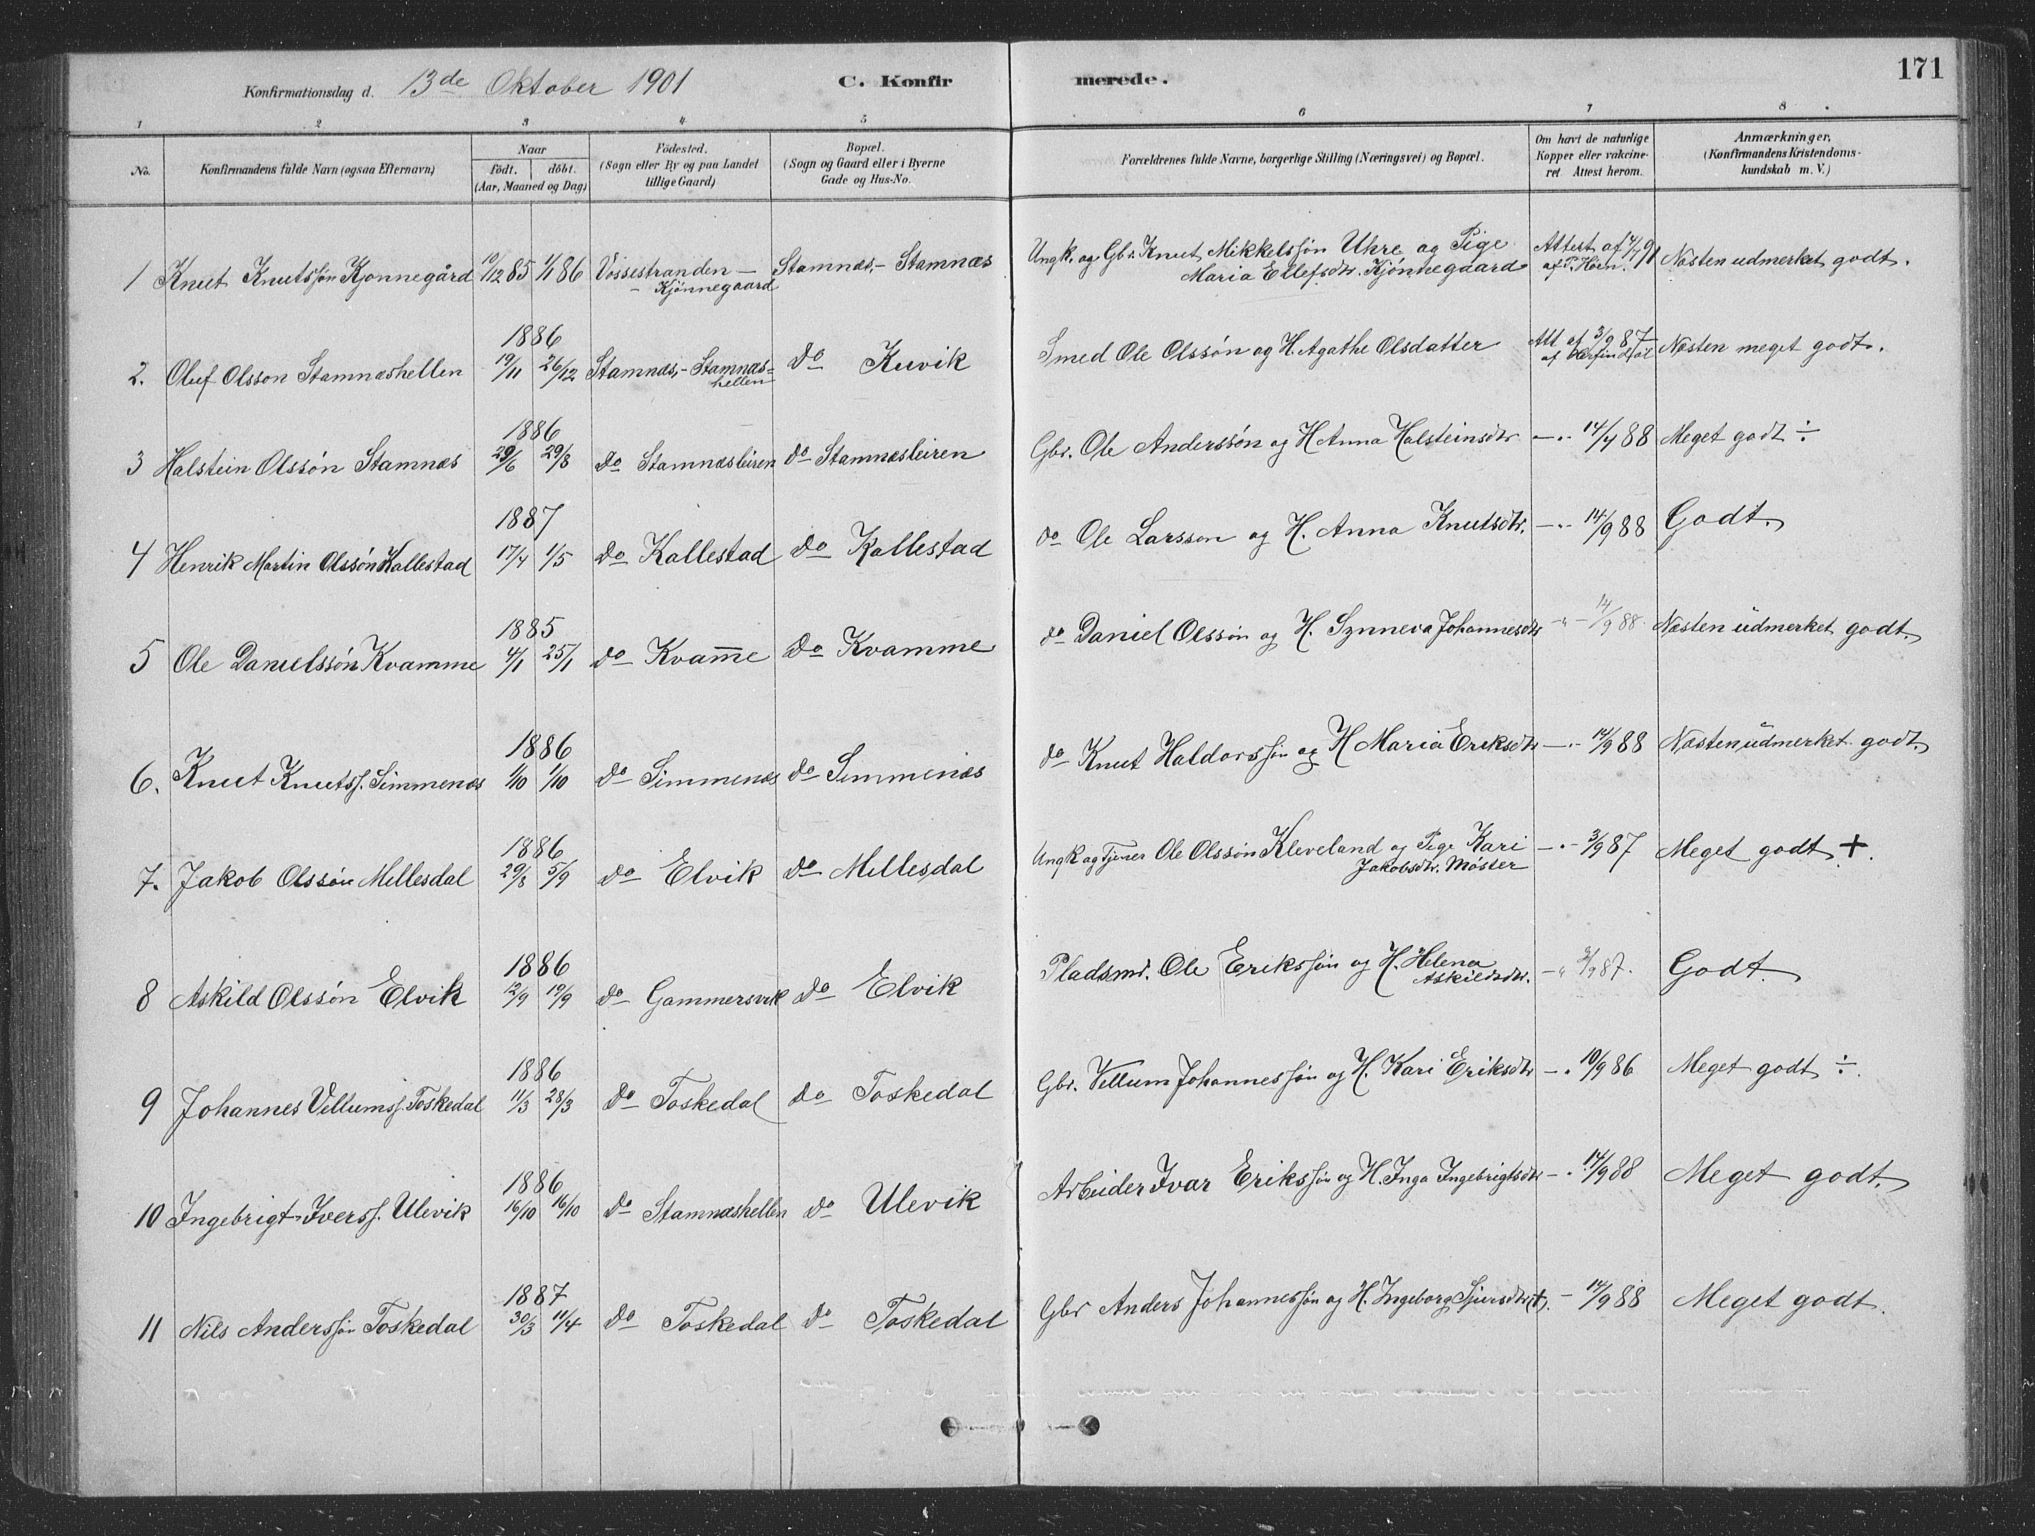 Konfirmationsdag d. 13de Oktober 1901 C. Konfirmerede. 171
1 2 3 4 5 6 7 8
No. Konfirmandens fulde Navn (ogsaa Efternavn) Naar født. døbt. (Aar, Maaned og Dag) Födested. (Sogn eller By og paa Landet tillige Gaard) Bopæl. (Sogn og Gaard eller i Byerne Gade og Hus-No. Forældrenes fulde Navne, borgerlige Stilling (Næringsvei) og Bopæl. Om havt de naturlige Kopper eller vakcineret Attest herom. Anmærkninger. (Konfirmandens Kristendomskundskab m. V.)
1 Knut Knutssøn Kjønnegård 10/12 85 1/1 86 Vossestranden – Kjønnegaard Stamnæs, – Stamnæs Ungk. og Gbr. Knut Mikkelssøn Uhre og Pige Maria Ellefsdtr. Kjønnegaard Attest af 4/7 91 af P. Hoen. Næsten udmerket godt.
1886
2. Oluf Olsson Stamnæshellen 19/11 26/12 Stamnæs, – Stamnæshellen do Kuvik Smed Ole Olssøn og H. Agathe Olsdatter Att. af 3/9 87 Næsten meget godt.
1886
3 Halstein Olssøn Stamnæs 29/6 29/8 do Stamnæsleiren do Stamnæsleiren Gbr. Ole Anderssøn og H Anna Halsteinsdtr. – „ 14/9 88 Meget godt ÷
1887
4 Henrik Martin Olssøn Kallestad 17/4 1/5 do Kallestad do Kallestad do Ole Larsson og H. Anna Knutsdtr. – „ 14/9 88 Godt.
1885
5 Ole Danielssøn Kvamme 4/1 25/1 do Kvam̅e do Kvamme do Daniel Olssøn og H. Synneva Johannesdtr – „ – 14/9 88. Næsten udmerket godt.
1886
6. Knut Knutss. Simmenæs 1/10 1/10 do Simmenæs do Simmenæs do Knut Haldorssøn og H Maria Eriksdtr – „ 14/9 88 Næsten udmerket godt.
1886
7. Jakob Olssøn Millesdal 29/8 5/9 do Elvik do Millesdal Ungk og Tjener Ole Olssøn Kleveland og Pige Kari Jakobsdtr. Møster – „ 3/9 87 Meget godt +.
1886
8 Askild Olssøn Elvik 12/9 19/9 do Gammersvik do Elvik Pladsmd. Ole Erikssøn og H. Helena Askildsdtr. – „ 3/9 87. Godt.
1886
9 Johannes Villumss. Toskedal 11/3 28/3 do Toskedal do Toskedal Gbr. Villum Johannessøn og H. Kari Eriksdtr – „ 10/9 86 Meget godt ÷.
1886
10 Ingebrigt Iverss. Ulevik 16/10 16/10 do Stamnæshellen do Ulevik Arbeider Ivar Erikssøn og H. Inga Ingebrigtsdtr – „ 14/9 88 Meget godt.
1887
11 Nils Anderssøn Toskedal 30/3 11/4 do Toskedal do Toskedal Gbr Anders Johannessøn og H. Ingeborg Sjursdtr (†). – 14/9 88 Meget godt.